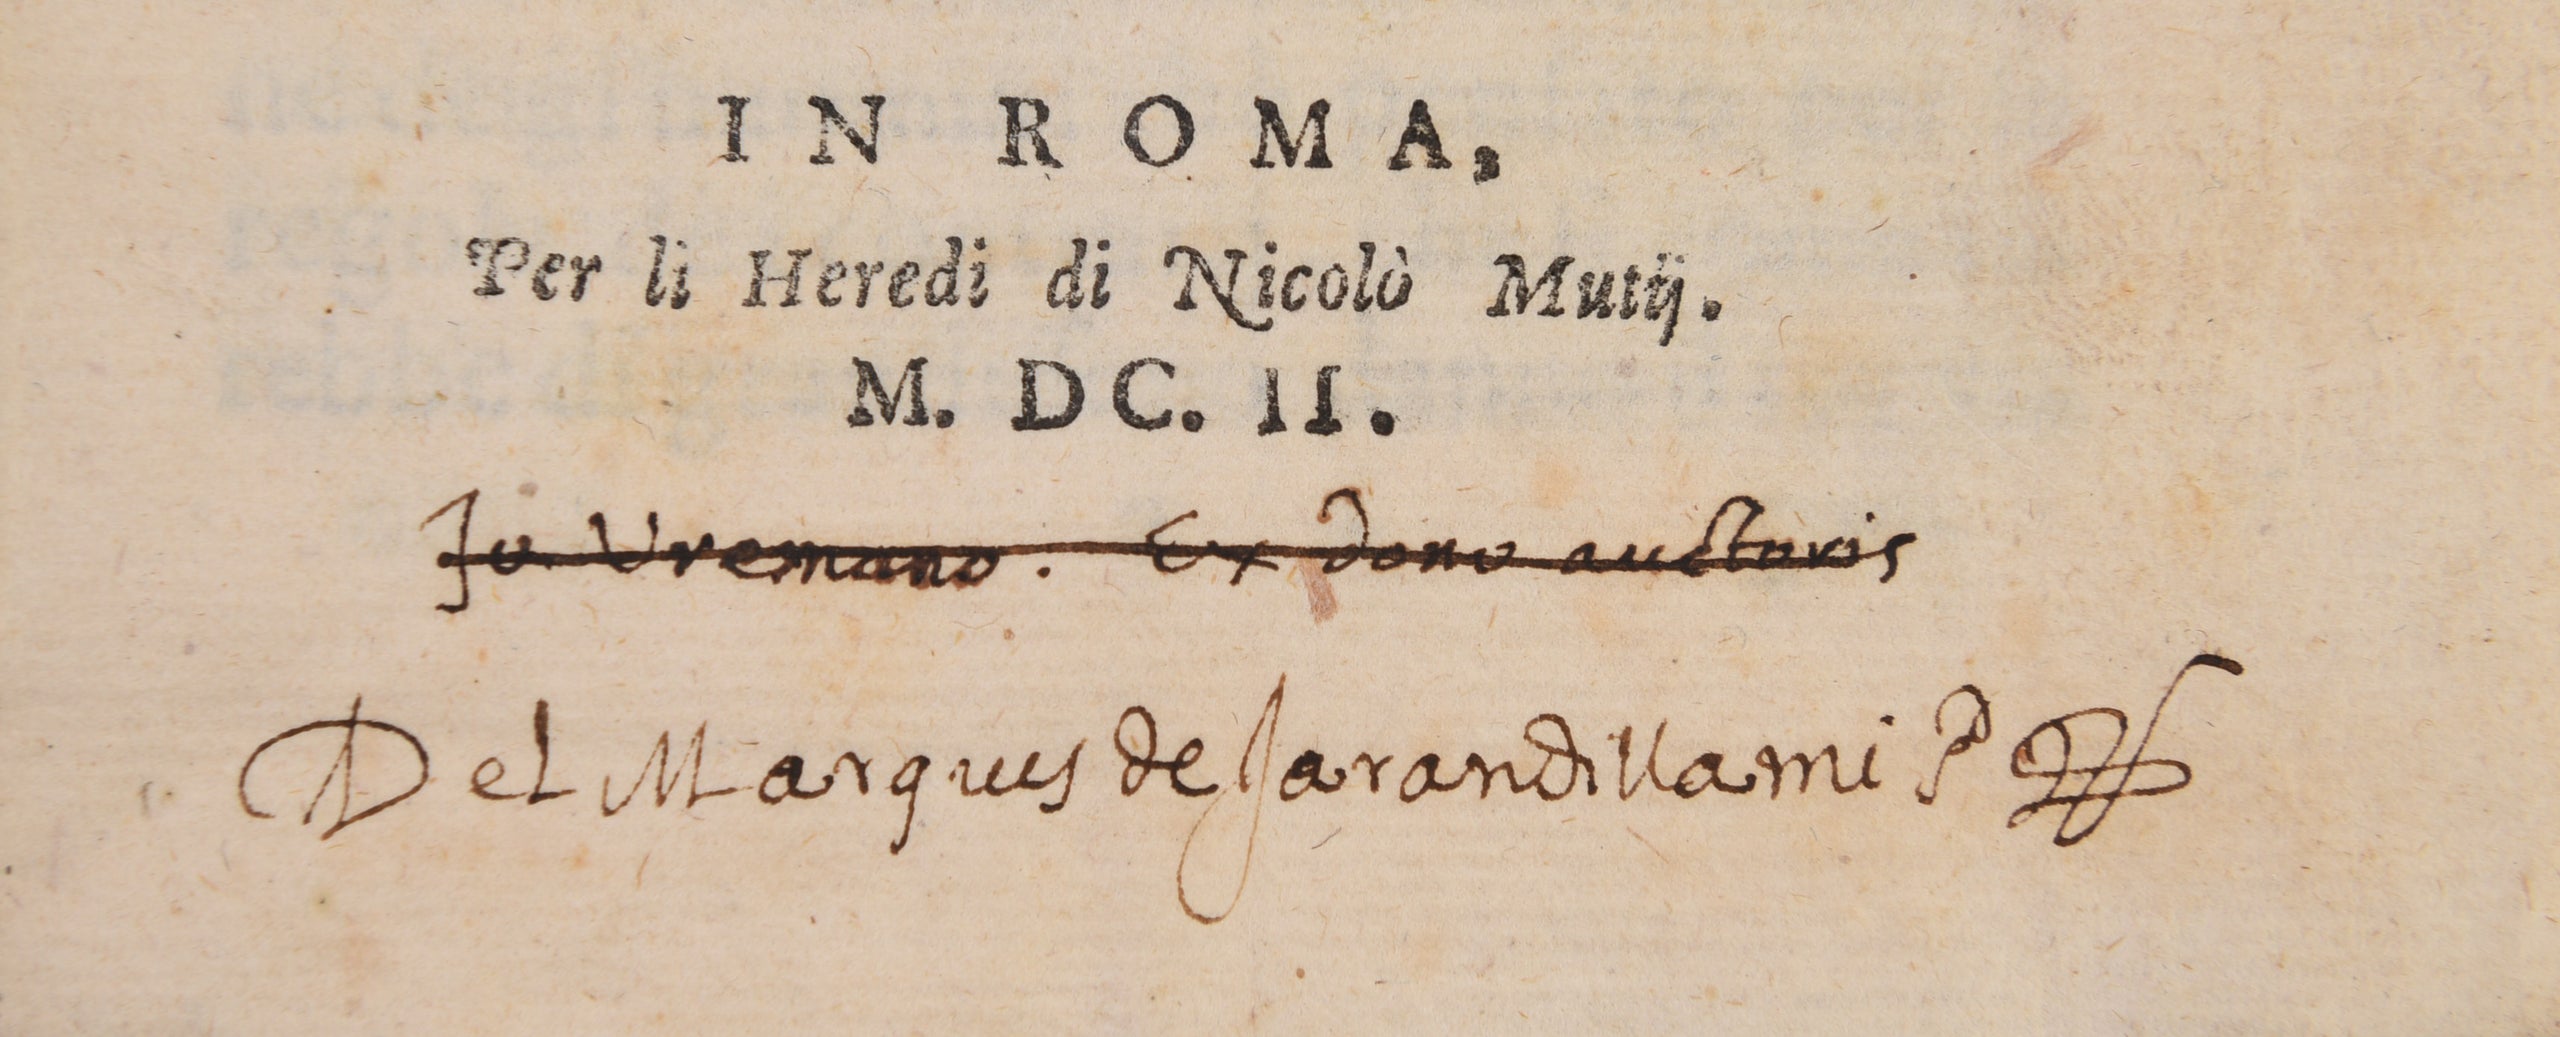 IN ROMA,
Per li Heredi di Nicolò Mutij.
M. DC. II.
Jo. Vremano. Ex dono auctoris
Del Marques de Jarandilla mi